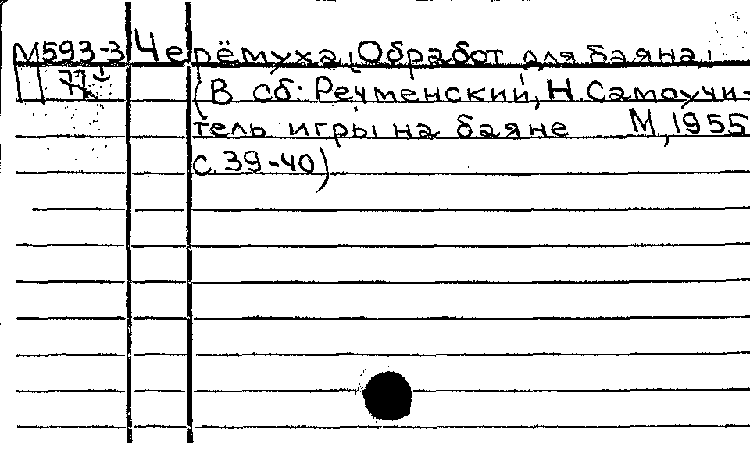 М593-3 Черёмуха. Обработ для баяна.
77
(В сб: Речменский, Н. Самоучи-
тель игры на баяне М, 1955
с. 39-40)